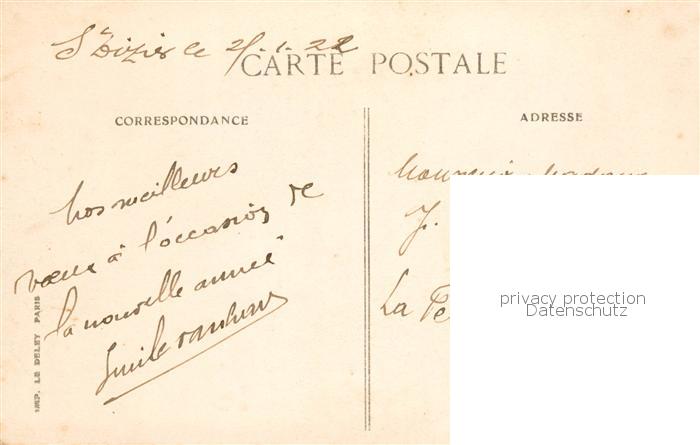 St Dizier le 2/.1.22
CARTE POSTALE
CORRESPONDANCE
ADRESSE
Nos meilleurs
vœux à l'occasion de
la nouvelle année
Emile
Monsieur Madame
J.
La
privacy protection
Datenschutz
IMP. LE DELEY PARIS